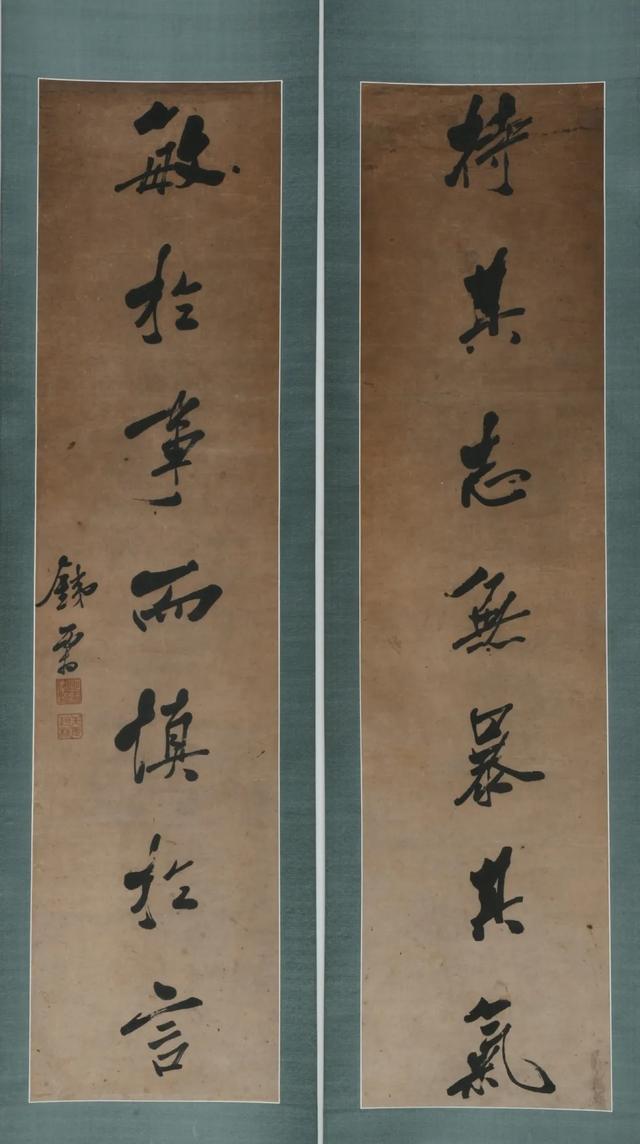 持其志無暴其氣
敏於事而慎於言
鐵霸